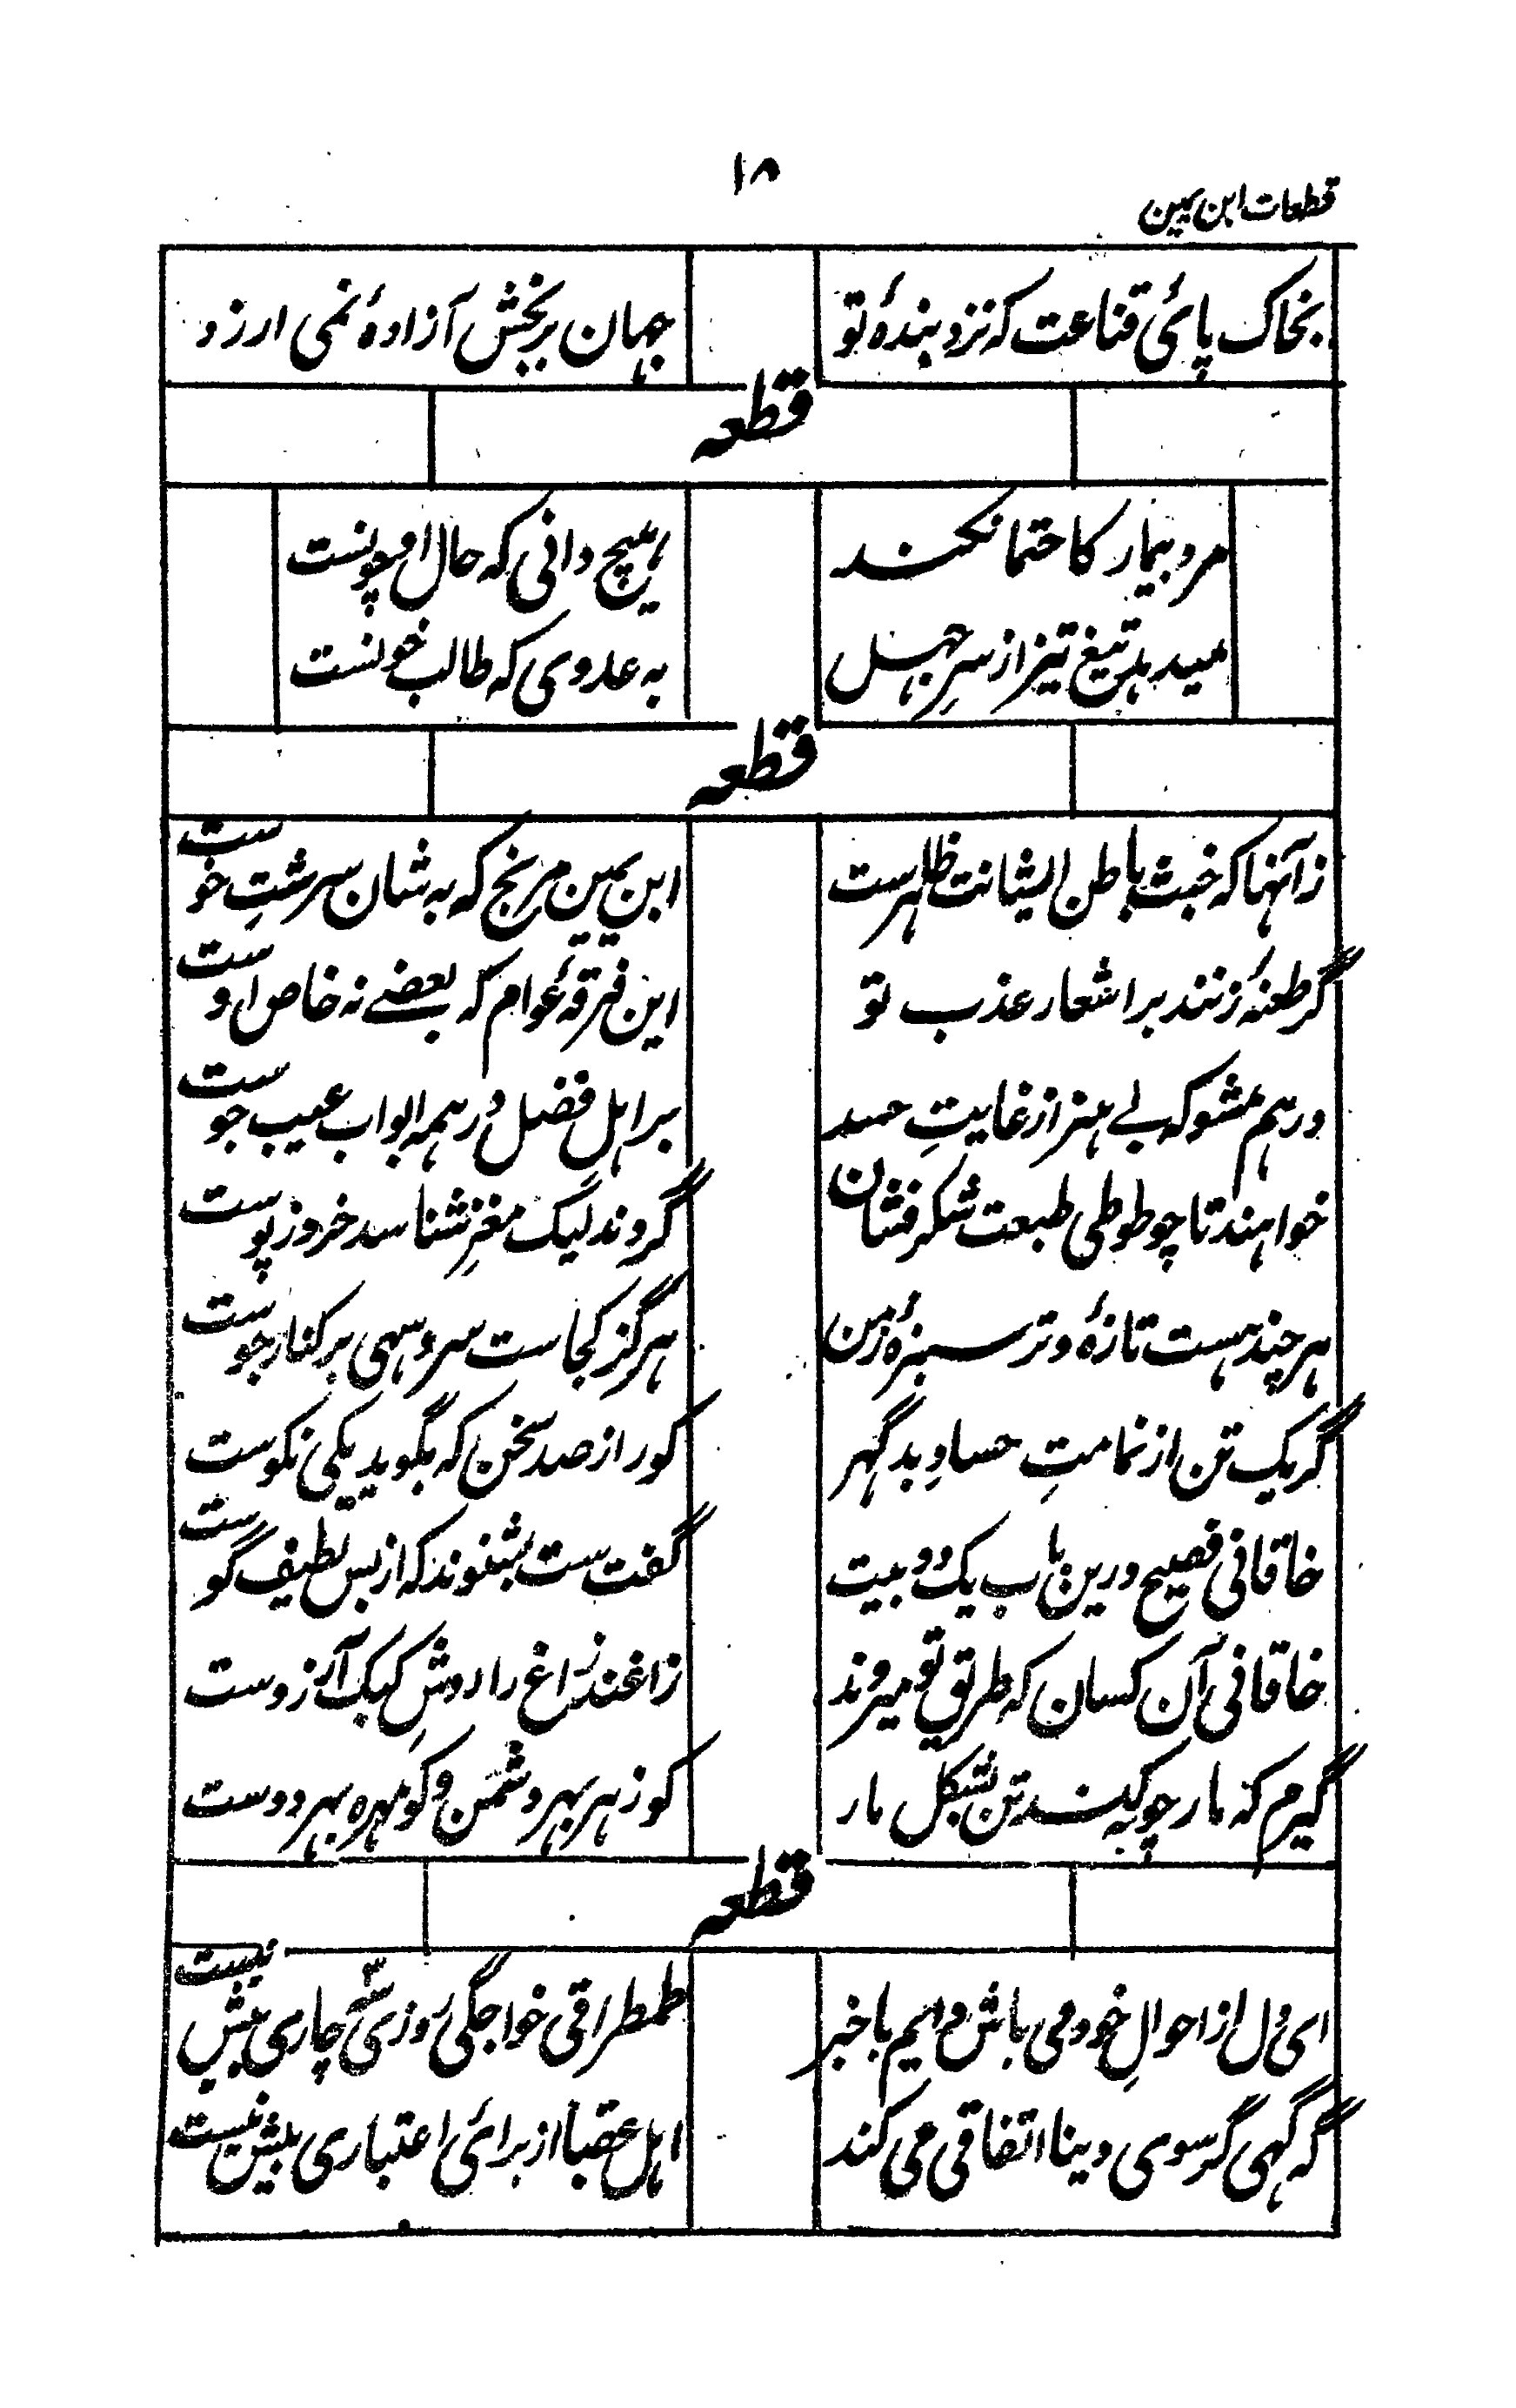 ۱۸
قطعات ابن یمین
بخاک پائی قناعت که نزد بندهٔ تو جهان برنجش آزادهٔ نمی ارزد
قطعه
مرد بیمار کاحتما نکند هیچ دانی که حال او چونست
میدهد تیغ تیز از سرِ جهل به عدوی که طالب خونست
قطعه
ابن یمین مرنج که به شان سرشتِ خوست زآنها که خبث باطن ایشانت ظاهرست
گر طعنهٔ زنند بر اشعار عذب تو این فرقهٔ عوام که بعضے نه خاص اوست
درهم مشو که بے هنر از غایتِ حسد بر اهل فضل در همه ابواب عیب جوست
خواهند تا چو طوطی طبعت شکر فشان گردند لیک مغز شناسد خرد ز پوست
هر چند هست تازهٔ و تر سبزهٔ زمن هرگز کجاست سرو سهی بر کنار جوست
گر یک تن از نمامتِ حسادِ بد گهر کور از صد سخن که بگوید یکی نکوست
خاقانی فصیح درین باب یک دو بیت گفت ست بشنوند که از بس لطیف گوست
خاقانی آن کسان که طریق تو میروند زاغند زاغ را روشِ کبک آرزوست
گیرم که مار چوبه کند تن بشکل مار کو زهر بهر دشمن و کو مهره بهر دوست
قطعه
ای دل از احوالِ خود می باش دایم باخبر طمطراقی خواجگی روزی سه چاری بیش نیست
گه گهی گر سوی دینا اتفاقی می کند اهل عقبا از برائی اعتباری بیش نیست